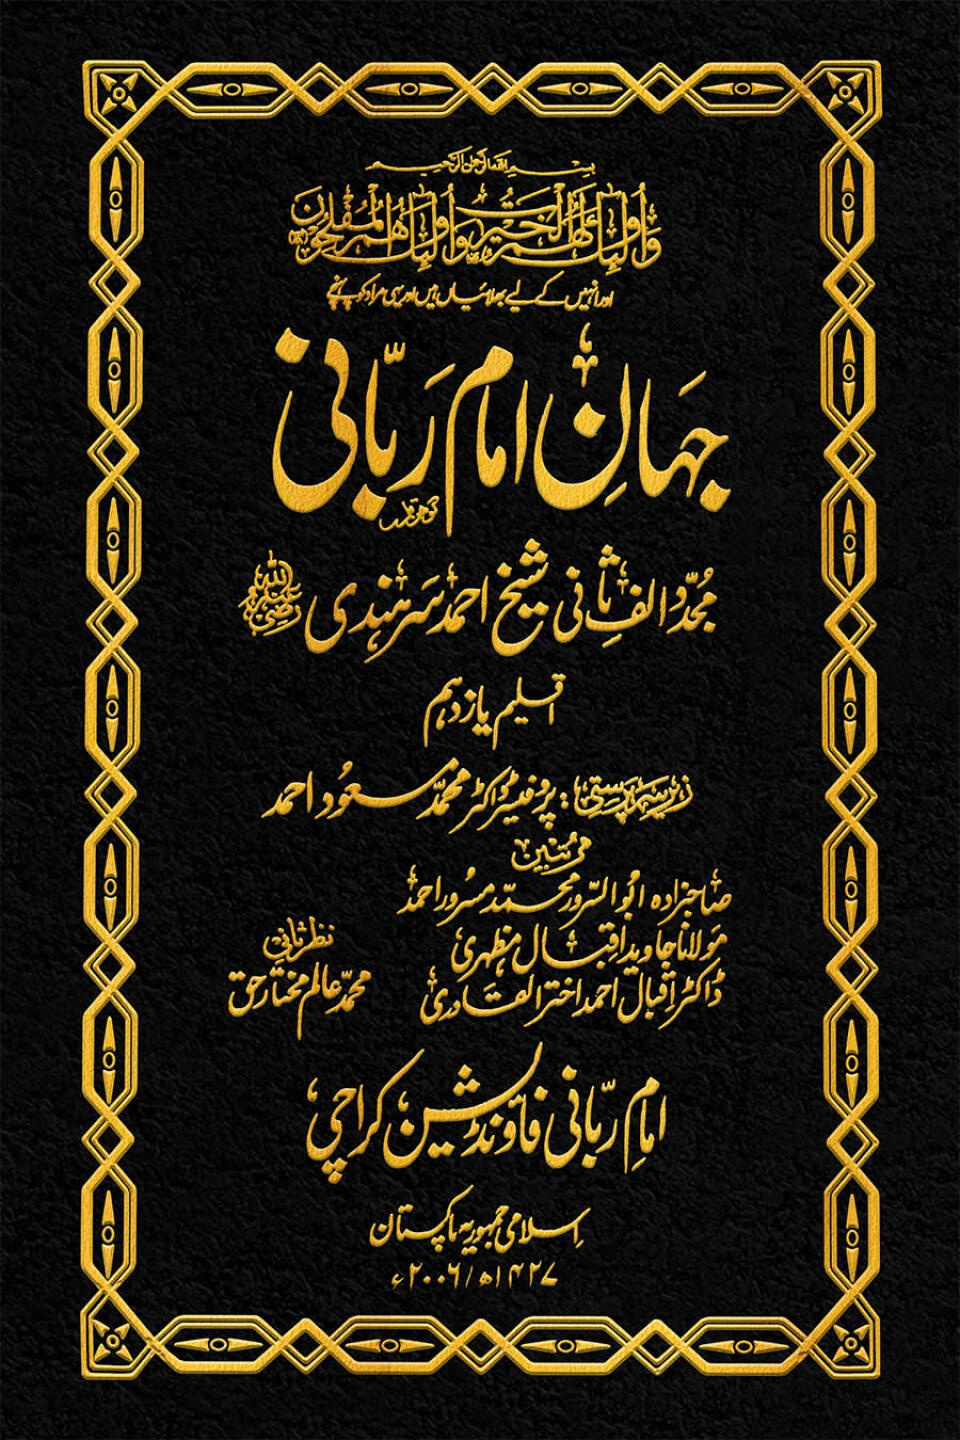 بسم اللہ الرحمٰن الرحیم
وَاُولٰٓئِكَ لَهُمُ الْخَيْرٰتُ وَاُولٰٓئِكَ هُمُ الْمُفْلِحُوْنَ
اور انہیں کے لیے بھلائیاں ہیں اور یہی مراد کو پہنچے
جہانِ امام ربّانی
مُجدّدِ الفِ ثانی شیخ احمد سَرہندی رضی اللہ عنہ
اقلیم یازدہم
زیر سرپرستی : پروفیسر ڈاکٹر محمّد مسعُود احمد
مرتبین
صاحبزادہ ابُو السّرور محمّد مسرُور احمد
مَولانا جاوید اقبال مظہری
نظر ثانی
ڈاکٹر اقبال احمد اختر القادری
محمّد عالم مختارِ حق
امامِ ربّانی فاؤنڈیشن کراچی
اِسلامی جمہوریہ پاکستان
۱۴۲۷ھ / ۲۰۰۶ء